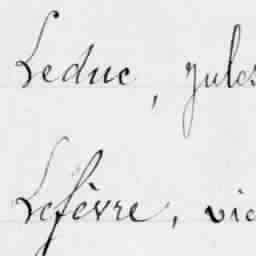 Leduc, Jules
Lefèvre, vic